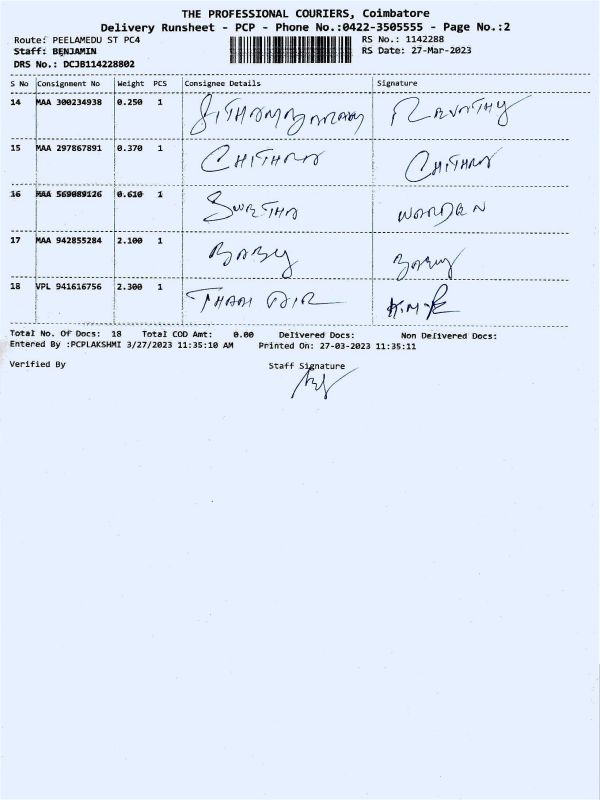 THE PROFESSIONAL COURIERS, Coimbatore
Delivery Runsheet - PCP - Phone No.:0422-3505555 - Page No.:2
Route: PEELAMEDU ST PC4 RS No.: 1142288
Staff: BENJAMIN RS Date: 27-Mar-2023
DRS No.: DCJB114228802
S No Consignment No Weight PCS Consignee Details Signature
14 MAA 300234938 0.250 1 REVATHY
15 MAA 297867891 0.370 1 CHITHRA CHITHRA
16 MAA 569089126 0.610 1 SWETHA WARDEN
17 MAA 942855284 2.100 1 BABY BABY
18 VPL 941616756 2.300 1
Total No. Of Docs: 18 Total COD Amt: 0.00 Delivered Docs: Non Delivered Docs:
Entered By :PCPLAKSHMI 3/27/2023 11:35:10 AM Printed On: 27-03-2023 11:35:11
Verified By Staff Signature